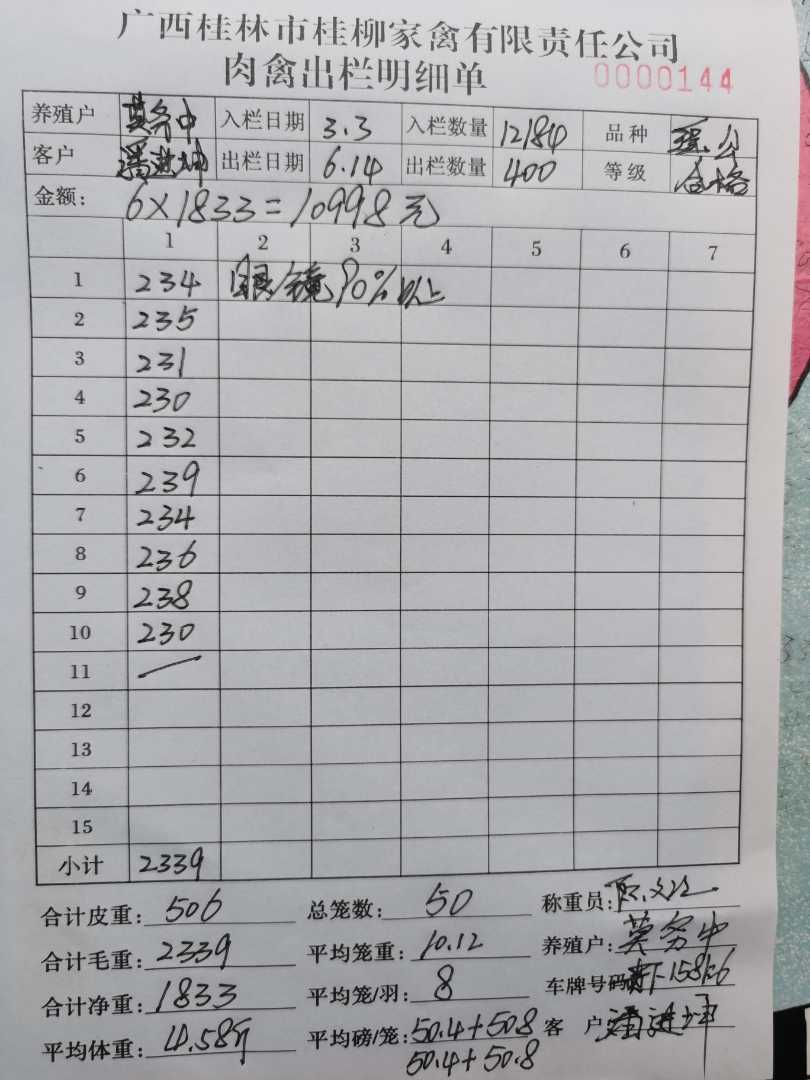 广西桂林市桂柳家禽有限责任公司
肉禽出栏明细单 0000144
养殖户 莫务中 入栏日期 3.3 入栏数量 12184 品种
客户 潘进坤 出栏日期 6.14 出栏数量 400 等级 合格
金额: 6×1833=10998元
1 2 3 4 5 6 7
1 234 眼镜90%以上
2 235
3 231
4 230
5 232
6 239
7 234
8 236
9 238
10 230
11 —
12
13
14
15
小计 2339
合计皮重: 506 总笼数: 50 称重员:
合计毛重: 2339 平均笼重: 10.12 养殖户: 莫务中
合计净重: 1833 平均笼/羽: 8 车牌号码
平均体重: 4.58斤 平均磅/笼: 50.4+50.8 客户 潘进坤
50.4+50.8